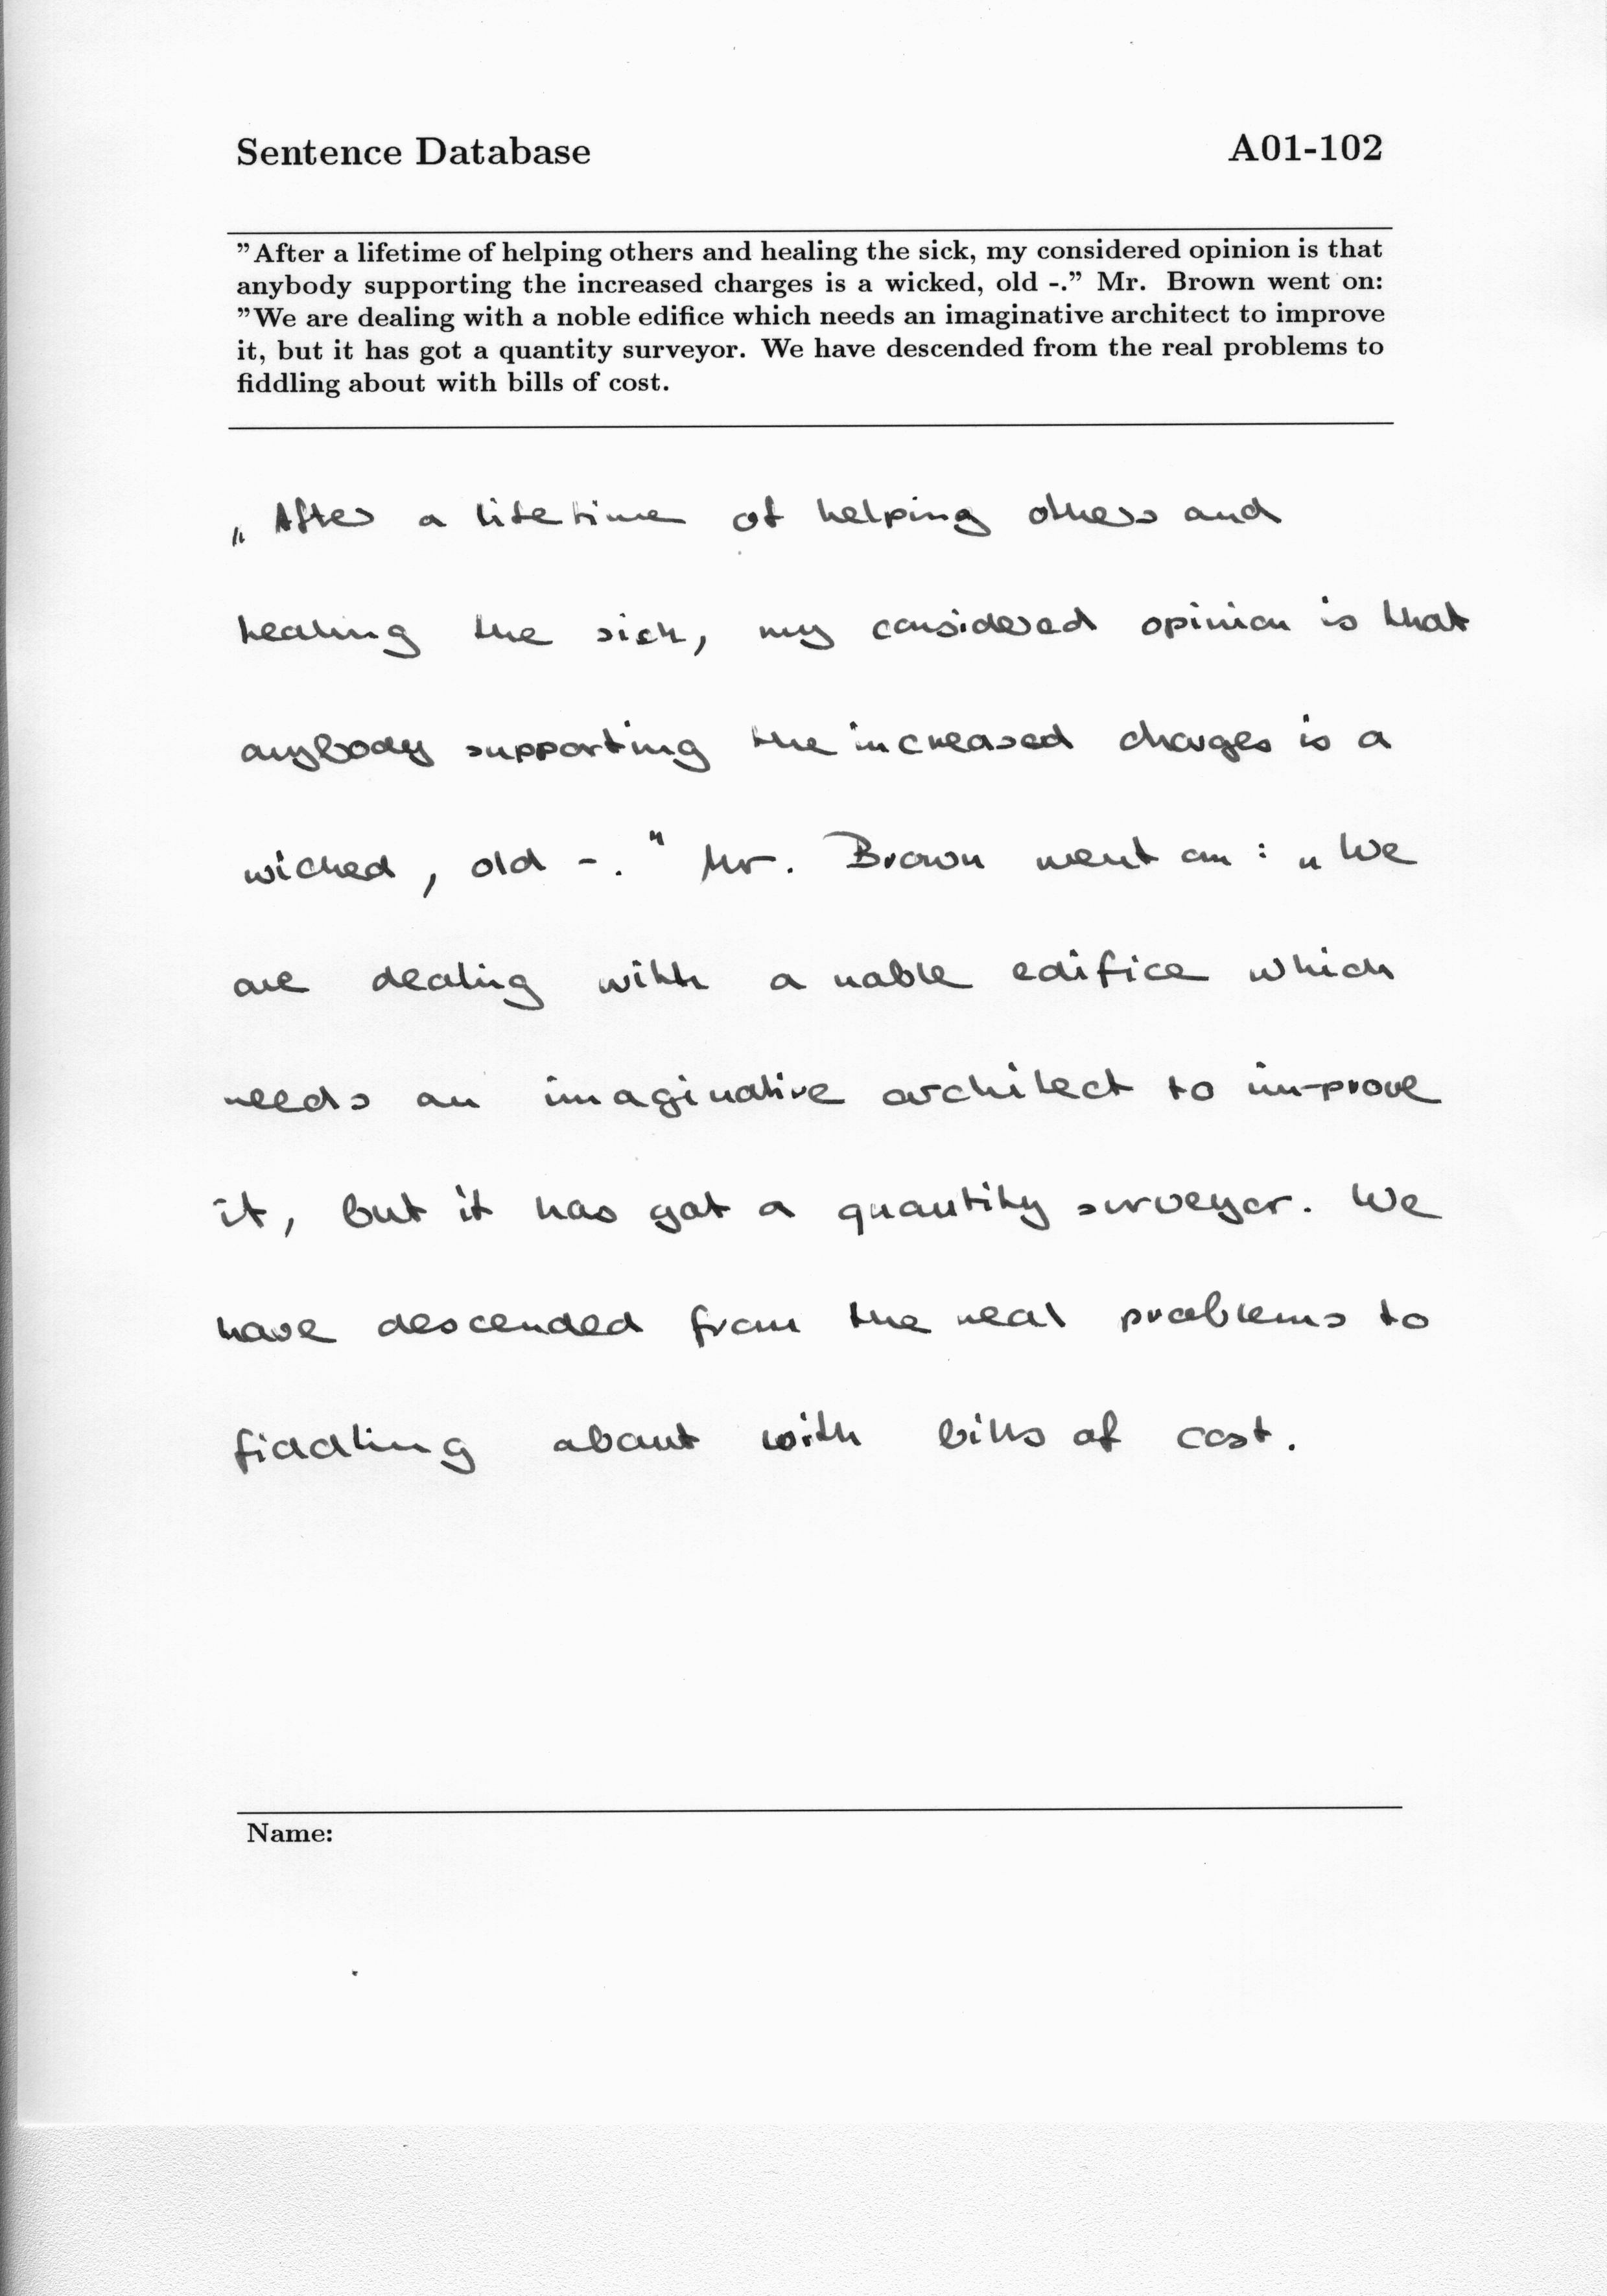 Sentence Database A01-102
”After a lifetime of helping others and healing the sick, my considered opinion is that
anybody supporting the increased charges is a wicked, old -.” Mr. Brown went on:
”We are dealing with a noble edifice which needs an imaginative architect to improve
it, but it has got a quantity surveyor. We have descended from the real problems to
fiddling about with bills of cost.
„After a lifetime of helping others and
healing the sick, my considered opinion is that
anybody supporting the increased charges is a
wicked, old -." Mr. Brown went on: „We
are dealing with a noble edifice which
needs an imaginative architect to improve
it, but it has got a quantity surveyor. We
have descended from the real problems to
fiddling about with bills of cost.
Name: